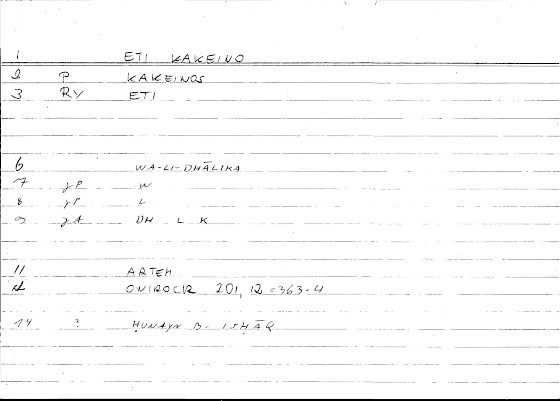 1 ETI KAKEINO
2 P KAKEINOS
3 RY ETI
6 WA-LI-DHĀLIKA
7 γP W
8 γP L
9 γA DH L K
11 ARTEM
ONIROCR 201, 12 = 363-4
14 ? ḤUNAYN B. ISḤĀQ